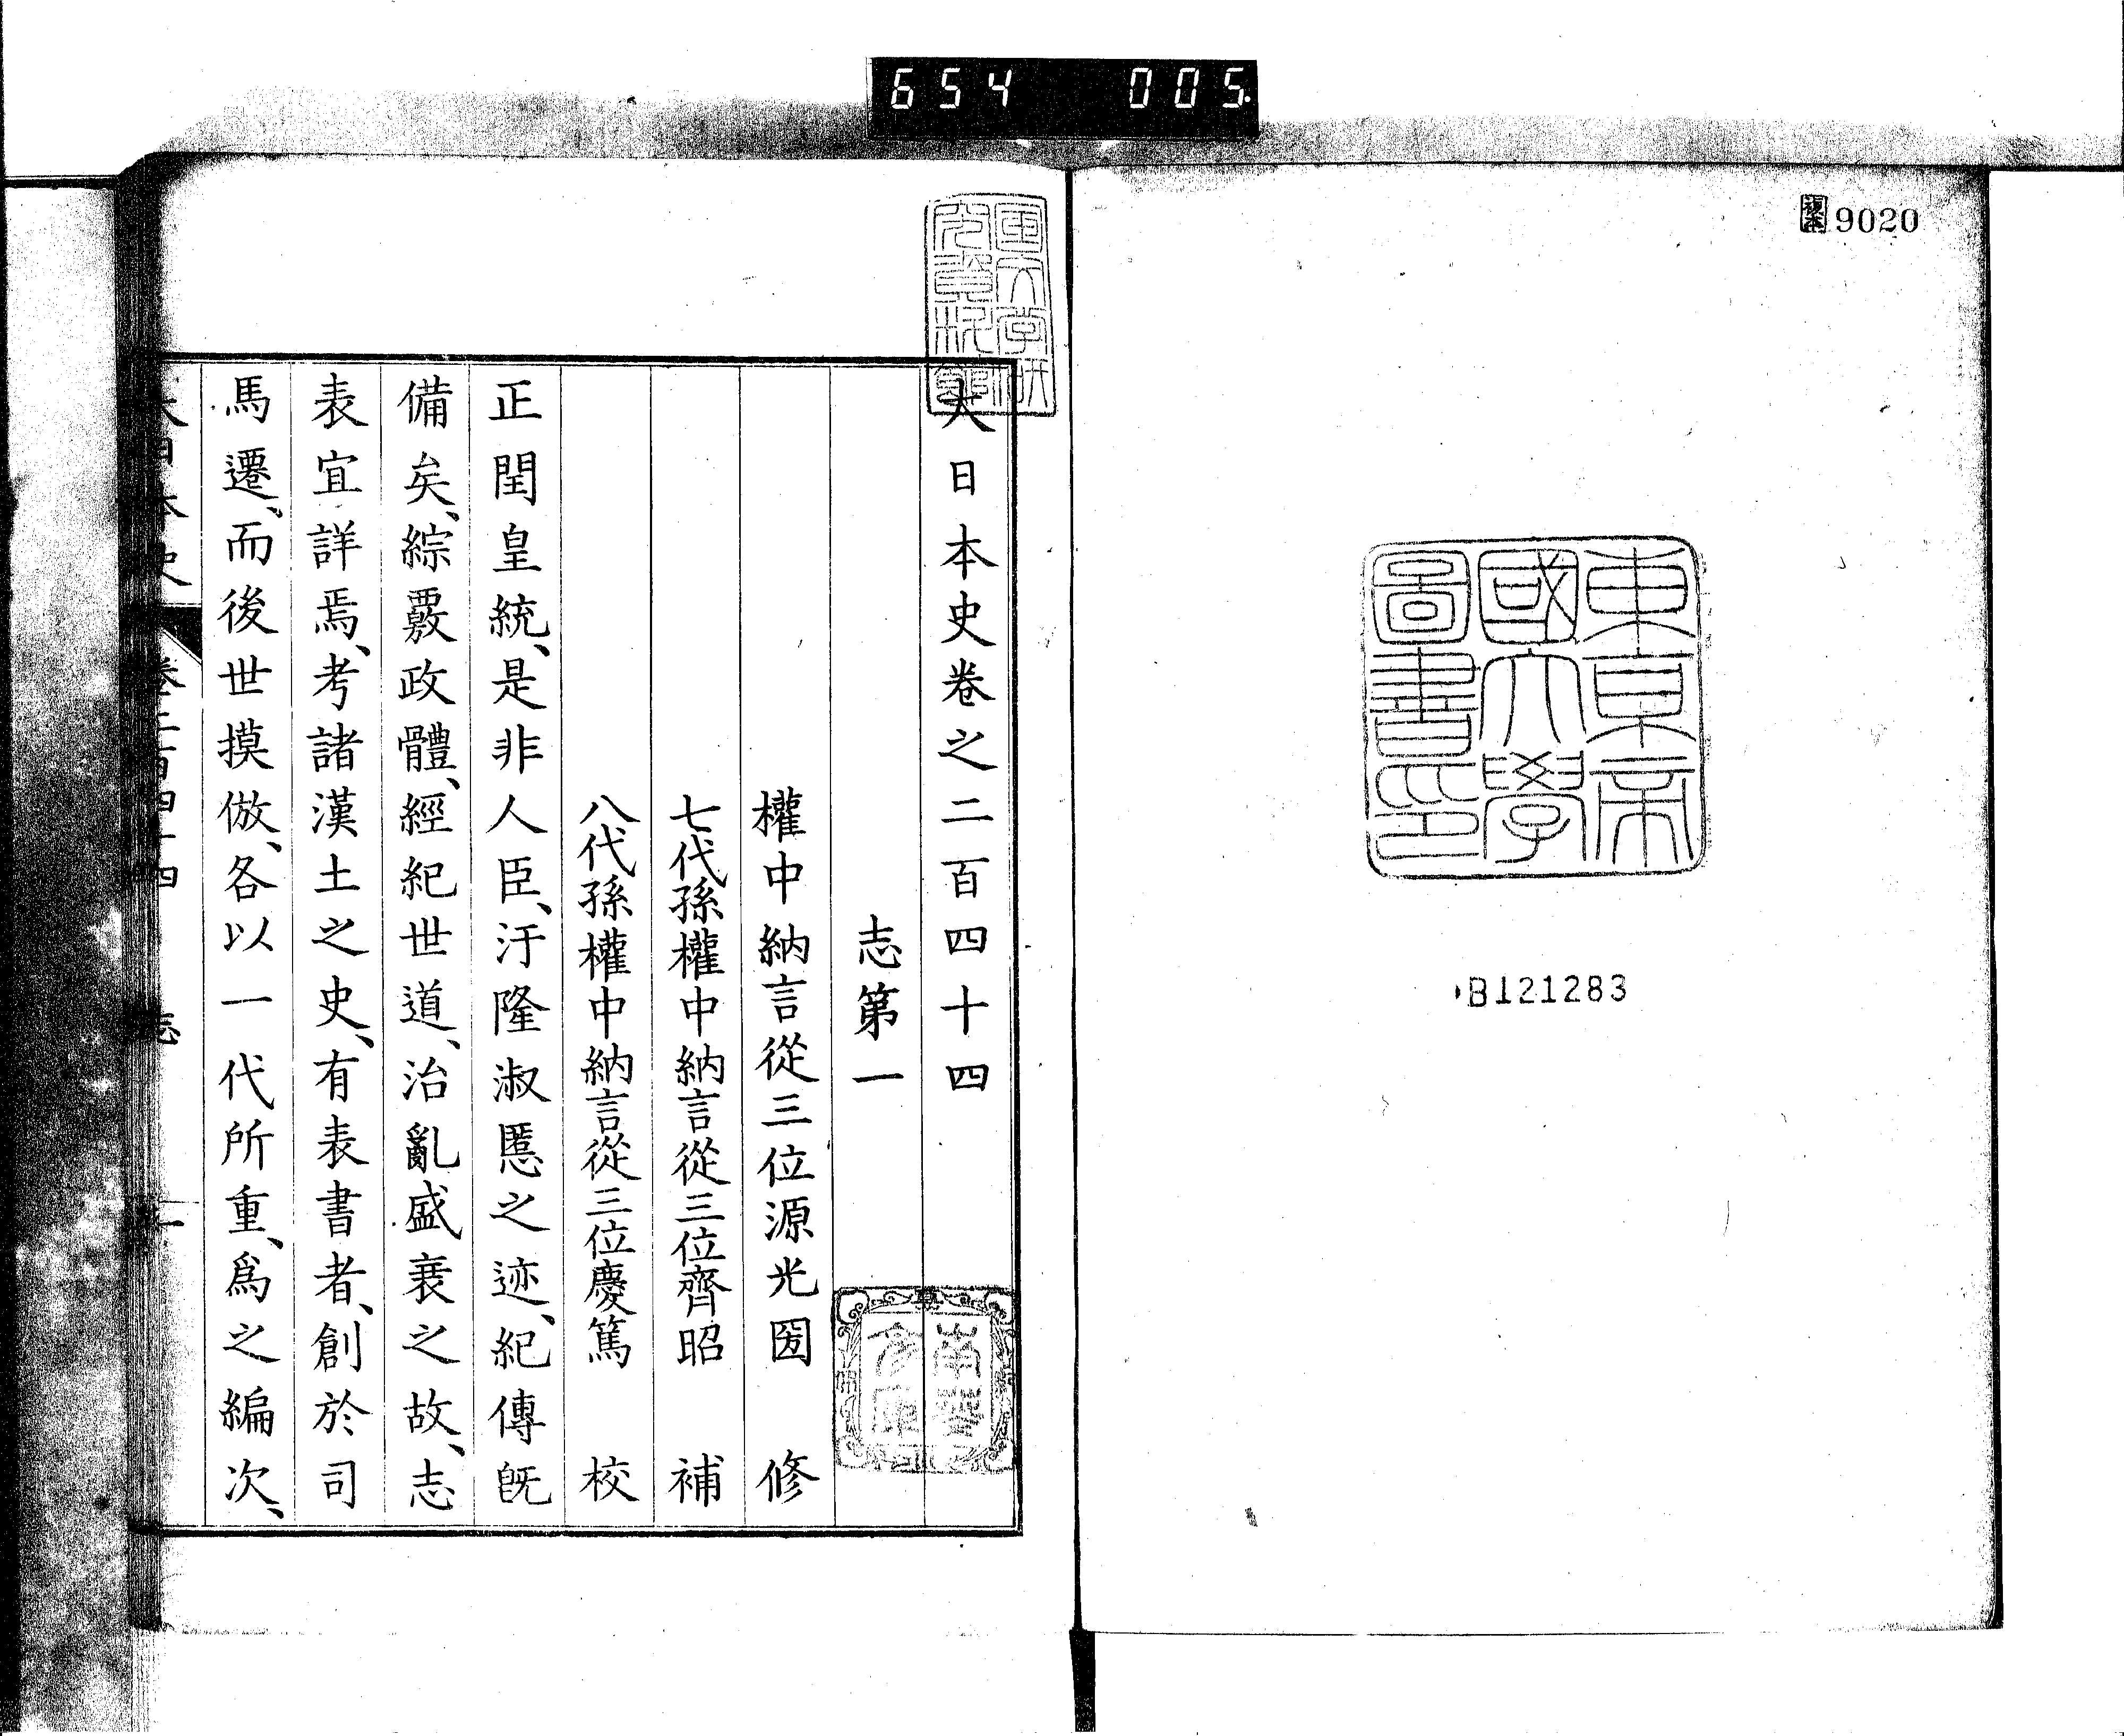 654 005.
複本 9020
東京帝
國大學
圖書印
B121283
大日本史卷之二百四十四
志第一
權中納言從三位源光圀 修
七代孫權中納言從三位齊昭 補
八代孫權中納言從三位慶篤 校
正閏皇統、是非人臣、汙隆淑慝之迹、紀傳旣
備矣、綜覈政體、經紀世道、治亂盛衰之故、志
表宜詳焉、考諸漢土之史、有表書者、創於司
馬遷、而後世摸倣、各以一代所重、爲之編次、
大日本史 卷二百四十四 志 一